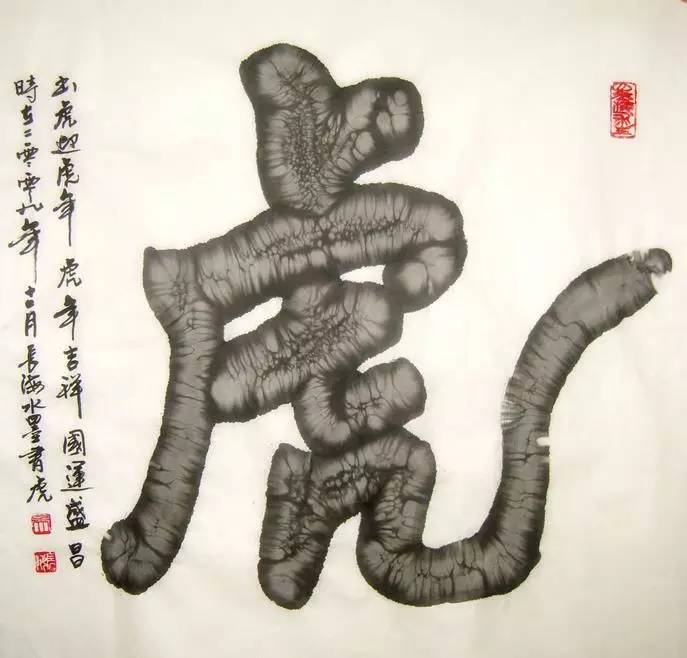 虎
虎迎虎年 虎年吉祥 國運盛昌
時在二零零九年十二月長海水墨書虎